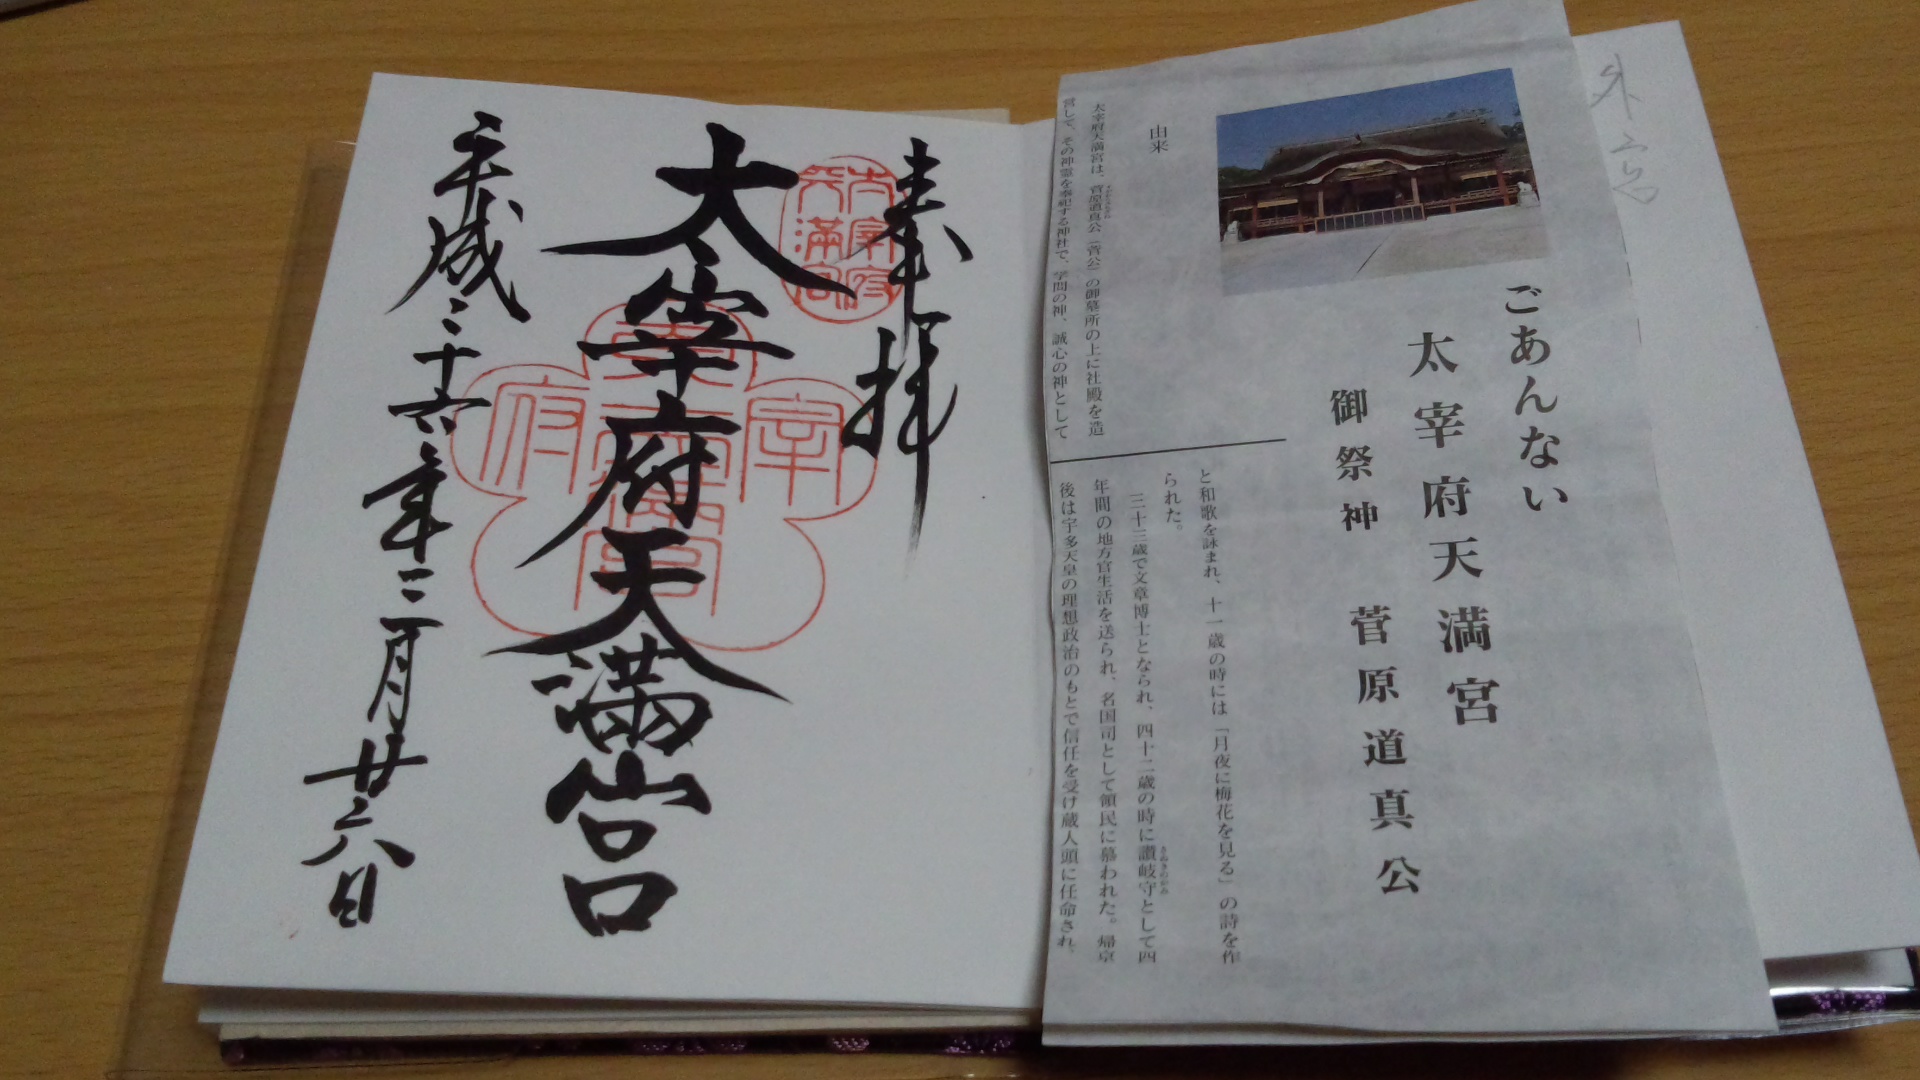 ごあんない
太宰府天満宮
御祭神　菅原道真公
由来
太宰府天満宮は、菅原道真公（菅公）の御墓所の上に社殿を造
営して、その神霊を奉祀する神社で、学問の神、誠心の神として
と和歌を詠まれ、十一歳の時には「月夜に梅花を見る」の詩を作
られた。
三十三歳で文章博士となられ、四十二歳の時に讃岐守として四
年間の地方官生活を送られ、名国司として領民に慕われた。帰京
後は宇多天皇の理想政治のもとで信任を受け蔵人頭に任命され、
奉拝
太宰府天満宮
太宰府天満宮
平成二十六年三月廿六日